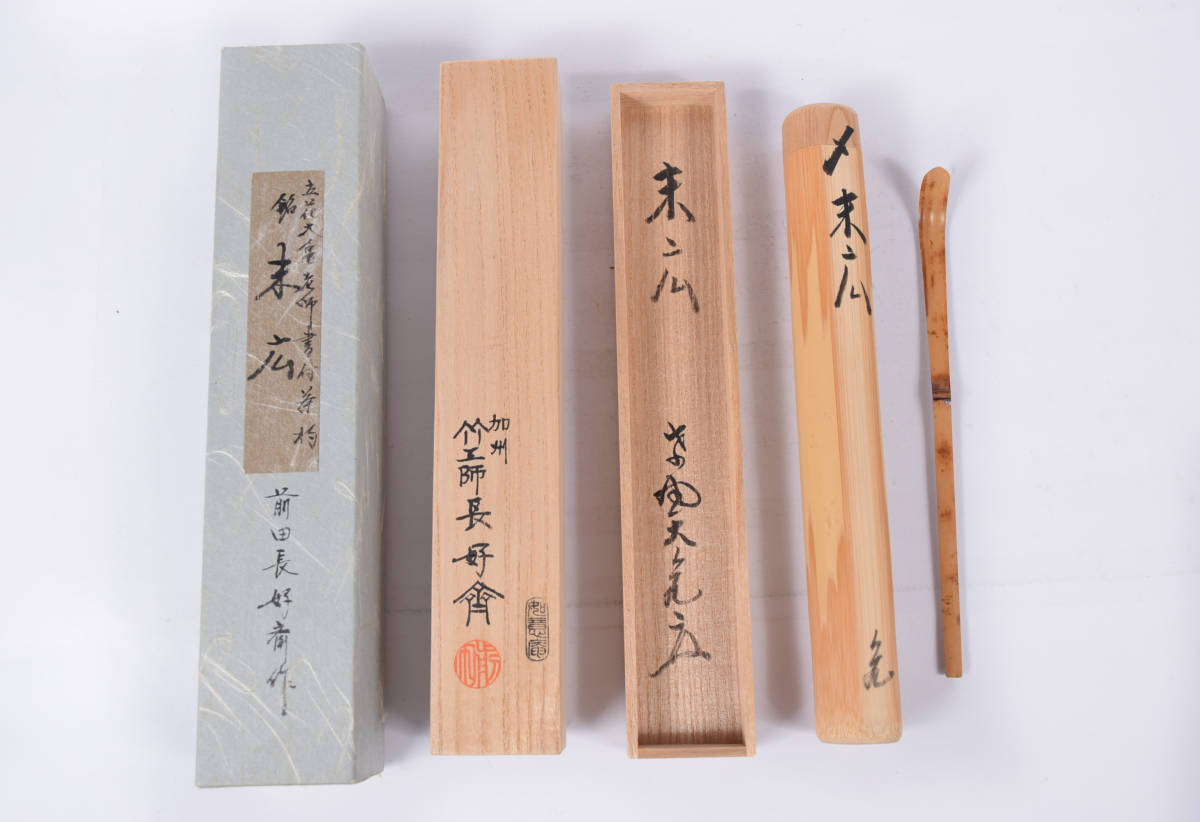 立花大亀老師書付茶杓
銘 末広
前田長好斎作
加州
竹工師長好齊
如意庵
末広
紫野大亀
〆末広
亀